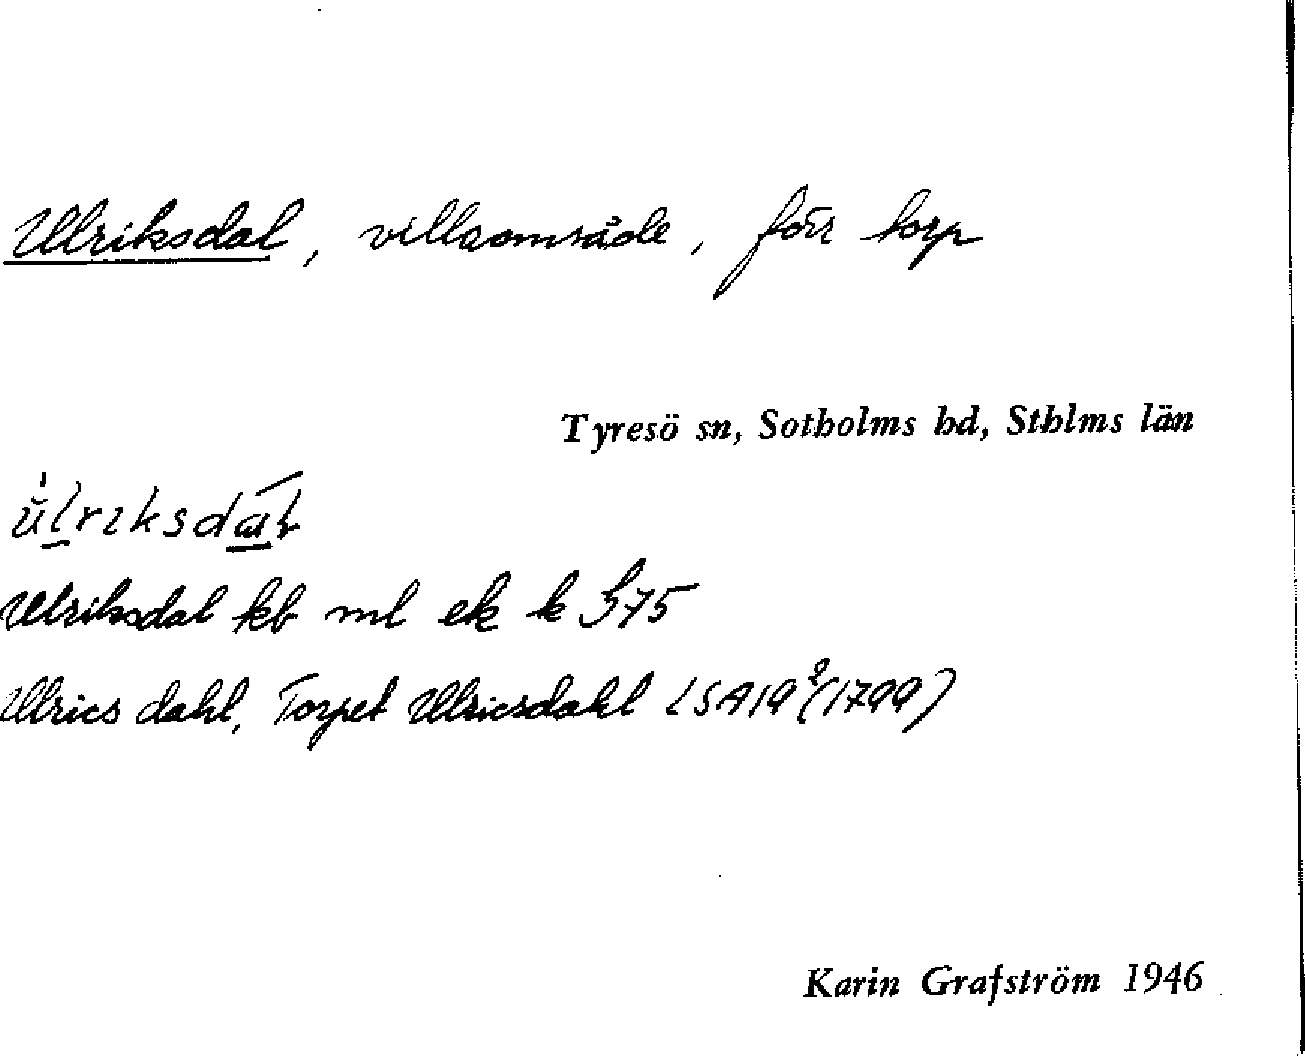 Ulriksdal, villaområde, förr torp
Tyresö sn, Sotholms hd, Sthlms län
Ulriksdal kb ml ek k J75
Ulrics dahl, Torpet Ulricsdahl LSA19²(1799)
Karin Grafström 1946